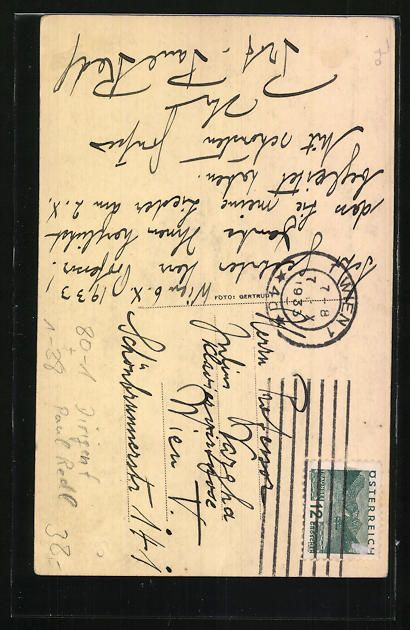 Wien 6. X. 1933!
Sehr geehrter Herr Professor!
Ich danke Ihnen herzlichst,
daß Sie meine Lieder am 2. X.
begleitet haben.
Mit schönsten Grüßen
Ihr
Paul Redl
FOTO: GERTRUD
WIEN 1
7. X
1933
* 4d *
ÖSTERREICH
12
GROSCHEN
Herrn Professor
Julius
Wien V
Schönbrunnerstr.
80-1 Dirigent
+ Paul Redl
1-38
38,-